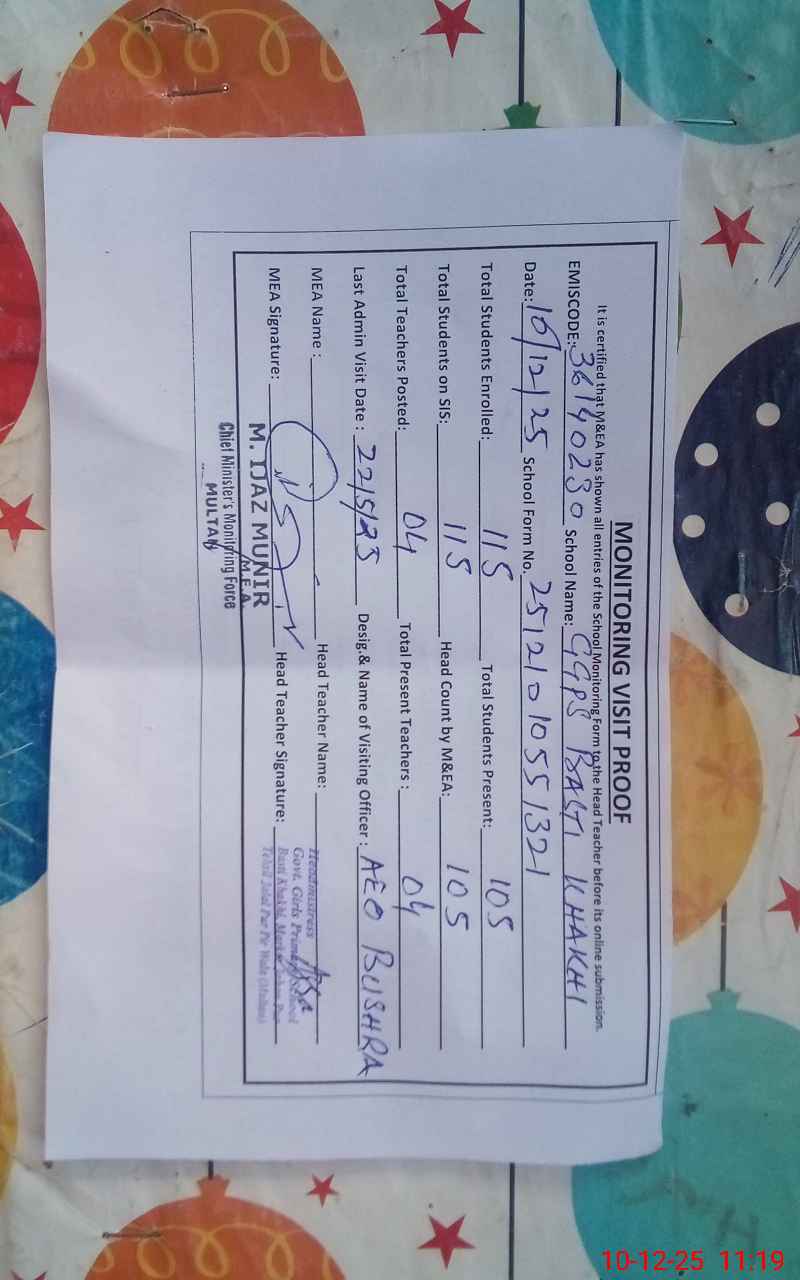 MONITORING VISIT PROOF
It is certified that M&EA has shown all entries of the School Monitoring Form to the Head Teacher before its online submission.
EMISCODE: 36140230 School Name: GGPS BASTI KHAKHI
Date: 10/12/25 School Form No. 2512101055 1321
Total Students Enrolled: 115 Total Students Present: 105
Total Students on SIS: 115 Head Count by M&EA: 105
Total Teachers Posted: 04 Total Present Teachers : 04
Last Admin Visit Date : 22/5/25 Desig.& Name of Visiting Officer : AEO BUSHRA
MEA Name : Head Teacher Name:
MEA Signature: Head Teacher Signature:
M. IJAZ MUNIR
M.E.A.
Chief Minister's Monitoring Force
MULTAN
Headmistress
Govt. Girls Primary School
Basti Khakhi, Markaz
Tehsil Jalal Pur Pir Wala (Multan)
10-12-25 11:19